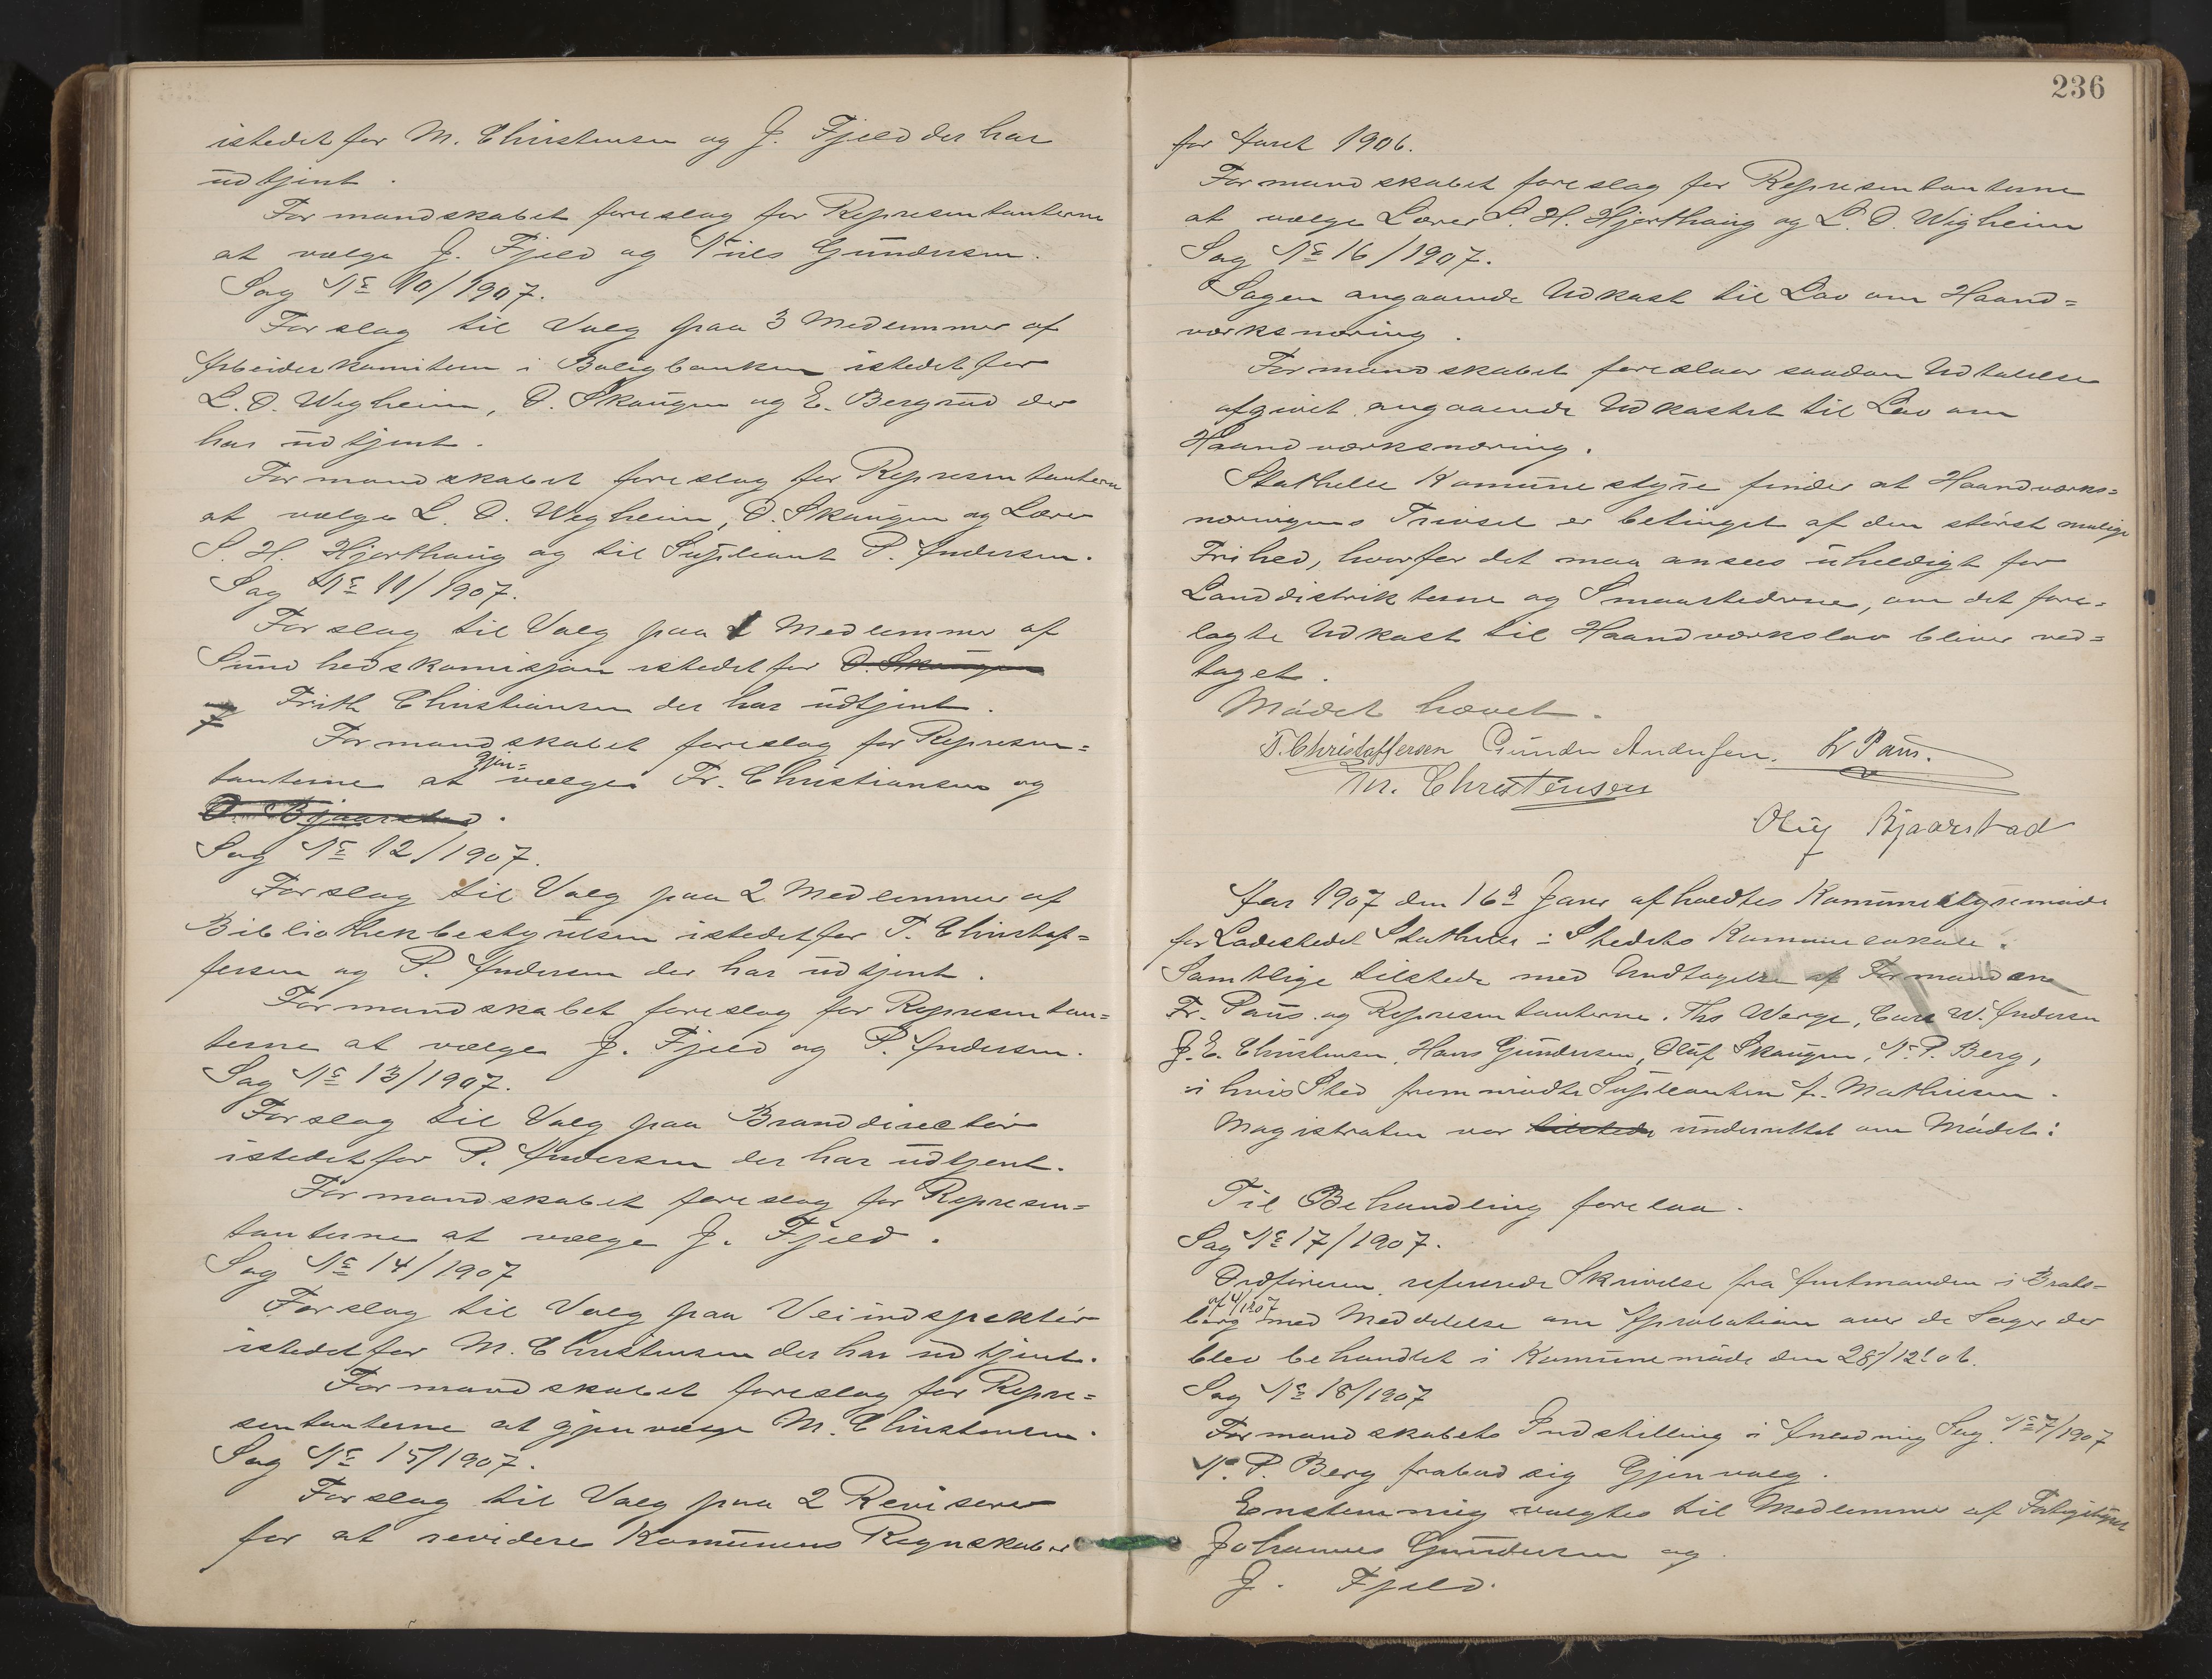 istedet for M. Christensen og J. Fjeld der har
udtjent.
Formandskabet foreslog for Representanterne
at vælge J. Fjeld og Nils Gundersen.
Sag No 10/1907.
Forslag til Valg paa 3 Medlemmer af
Arbeiderkomiteen i Boligbanken istedet for
L. O. Wigheim, O. Skaugen og E. Bergrud der
har udtjent.
Formandskabet foreslog for Representantern
at vælge L. O. Wigheim, O. Skaugen og Lærer
S. H. Hjorthaug og til Supleant P. Andersen.
Sag No 11/1907.
Forslag til Valg paa 1 Medlemmer af
Sundhedskomisjon istedet for O. Skaugen
og Frith Christiansen der har udtjent.
Formandskabet foreslog for Represen=
tanterne at gjen= vælge Fr. Christiansen og
O. Bjaarstad.
Sag No 12/1907.
Forslag til Valg paa 2 Medlemmer af
Bibliothekbestyrelsen istedet for T. Christof=
fersen og P. Andersen der har udtjent.
Formandskabet foreslog for Representan=
terne at vælge J. Fjeld og P. Andersen.
Sag No 13/1907.
Forslag til Valg paa Branddirectör
istedet for P. Andersen der har udtjent.
Formandskabet foreslog for Represen=
tanterne at vælge J. Fjeld.
Sag No 14/1907
Forslag til Valg paa Veiindspektör
istedet for M. Christensen der har udtjent.
Formandskabet foreslog for Repre=
sentanterne at gjenvælge M. Christensen.
Sag No 15/1907.
Forslag til Valg paa 2 Revisorer
for at revidere Komunens Regnskaber
236
for Aaret 1906.
Formandskabet foreslog for Representanterne
at vælge Lærer S. H. Hjorthaug og L. O. Wigheim
Sag No 16/1907.
Sagen angaaende Udkast til Lov om Haand=
værksnæring.
Formandskabet foreslaar saadan Udtalelse
afgivet angaaende Udkastet til Lov om
Haandværksnæring.
Stathelle Komunestyre finder at Haandværks=
næringens Trivsel er betinget af den störst mulige
Frihed, hvorfor det maa ansees uheldigt for
Landdistrikterne og Smaastederne, om det fore=
lagte Udkast til Haandværkslov bliver ved=
taget.
Mödet hævet.
T. Christoffersen Gunder Andersen. Fr Paus.
M. Christensen
Oluf Bjaarstad
Aar 1907 den 16d Janr afholdtes Komunestyremöde
for Ladestedet Stathelle i Stedets Komunelokale.
Samtlige tilstede med Undtagelse af Formændene
Fr. Paus og Representanterne. Ths Warge, Carl W. Andersen
J. E. Christensen, Hans Gundersen, Oluf Skaugen, N. P. Berg,
i hvis Sted fremmödte Supleanten A. Mathisen.
Magistraten var tilstede underrettet om Mödet:
Til Behandling forelaa.
Sag No 17/1907.
Ordföreren refererede Skrivelse fra Amtmanden i Brats=
berg af 4/1907 med Meddelelse om Aprobation over de Sager der
blev behandlet i Komunemöde den 28/12.06.
Sag No 18/1907
Formandskabets Indstilling i Anledning Sag. No 7/1907
N. P. Berg frabad sig Gjenvalg.
Enstemmig valgtes til Medlemmer af
Johannes Gundersen og
J. Fjeld.